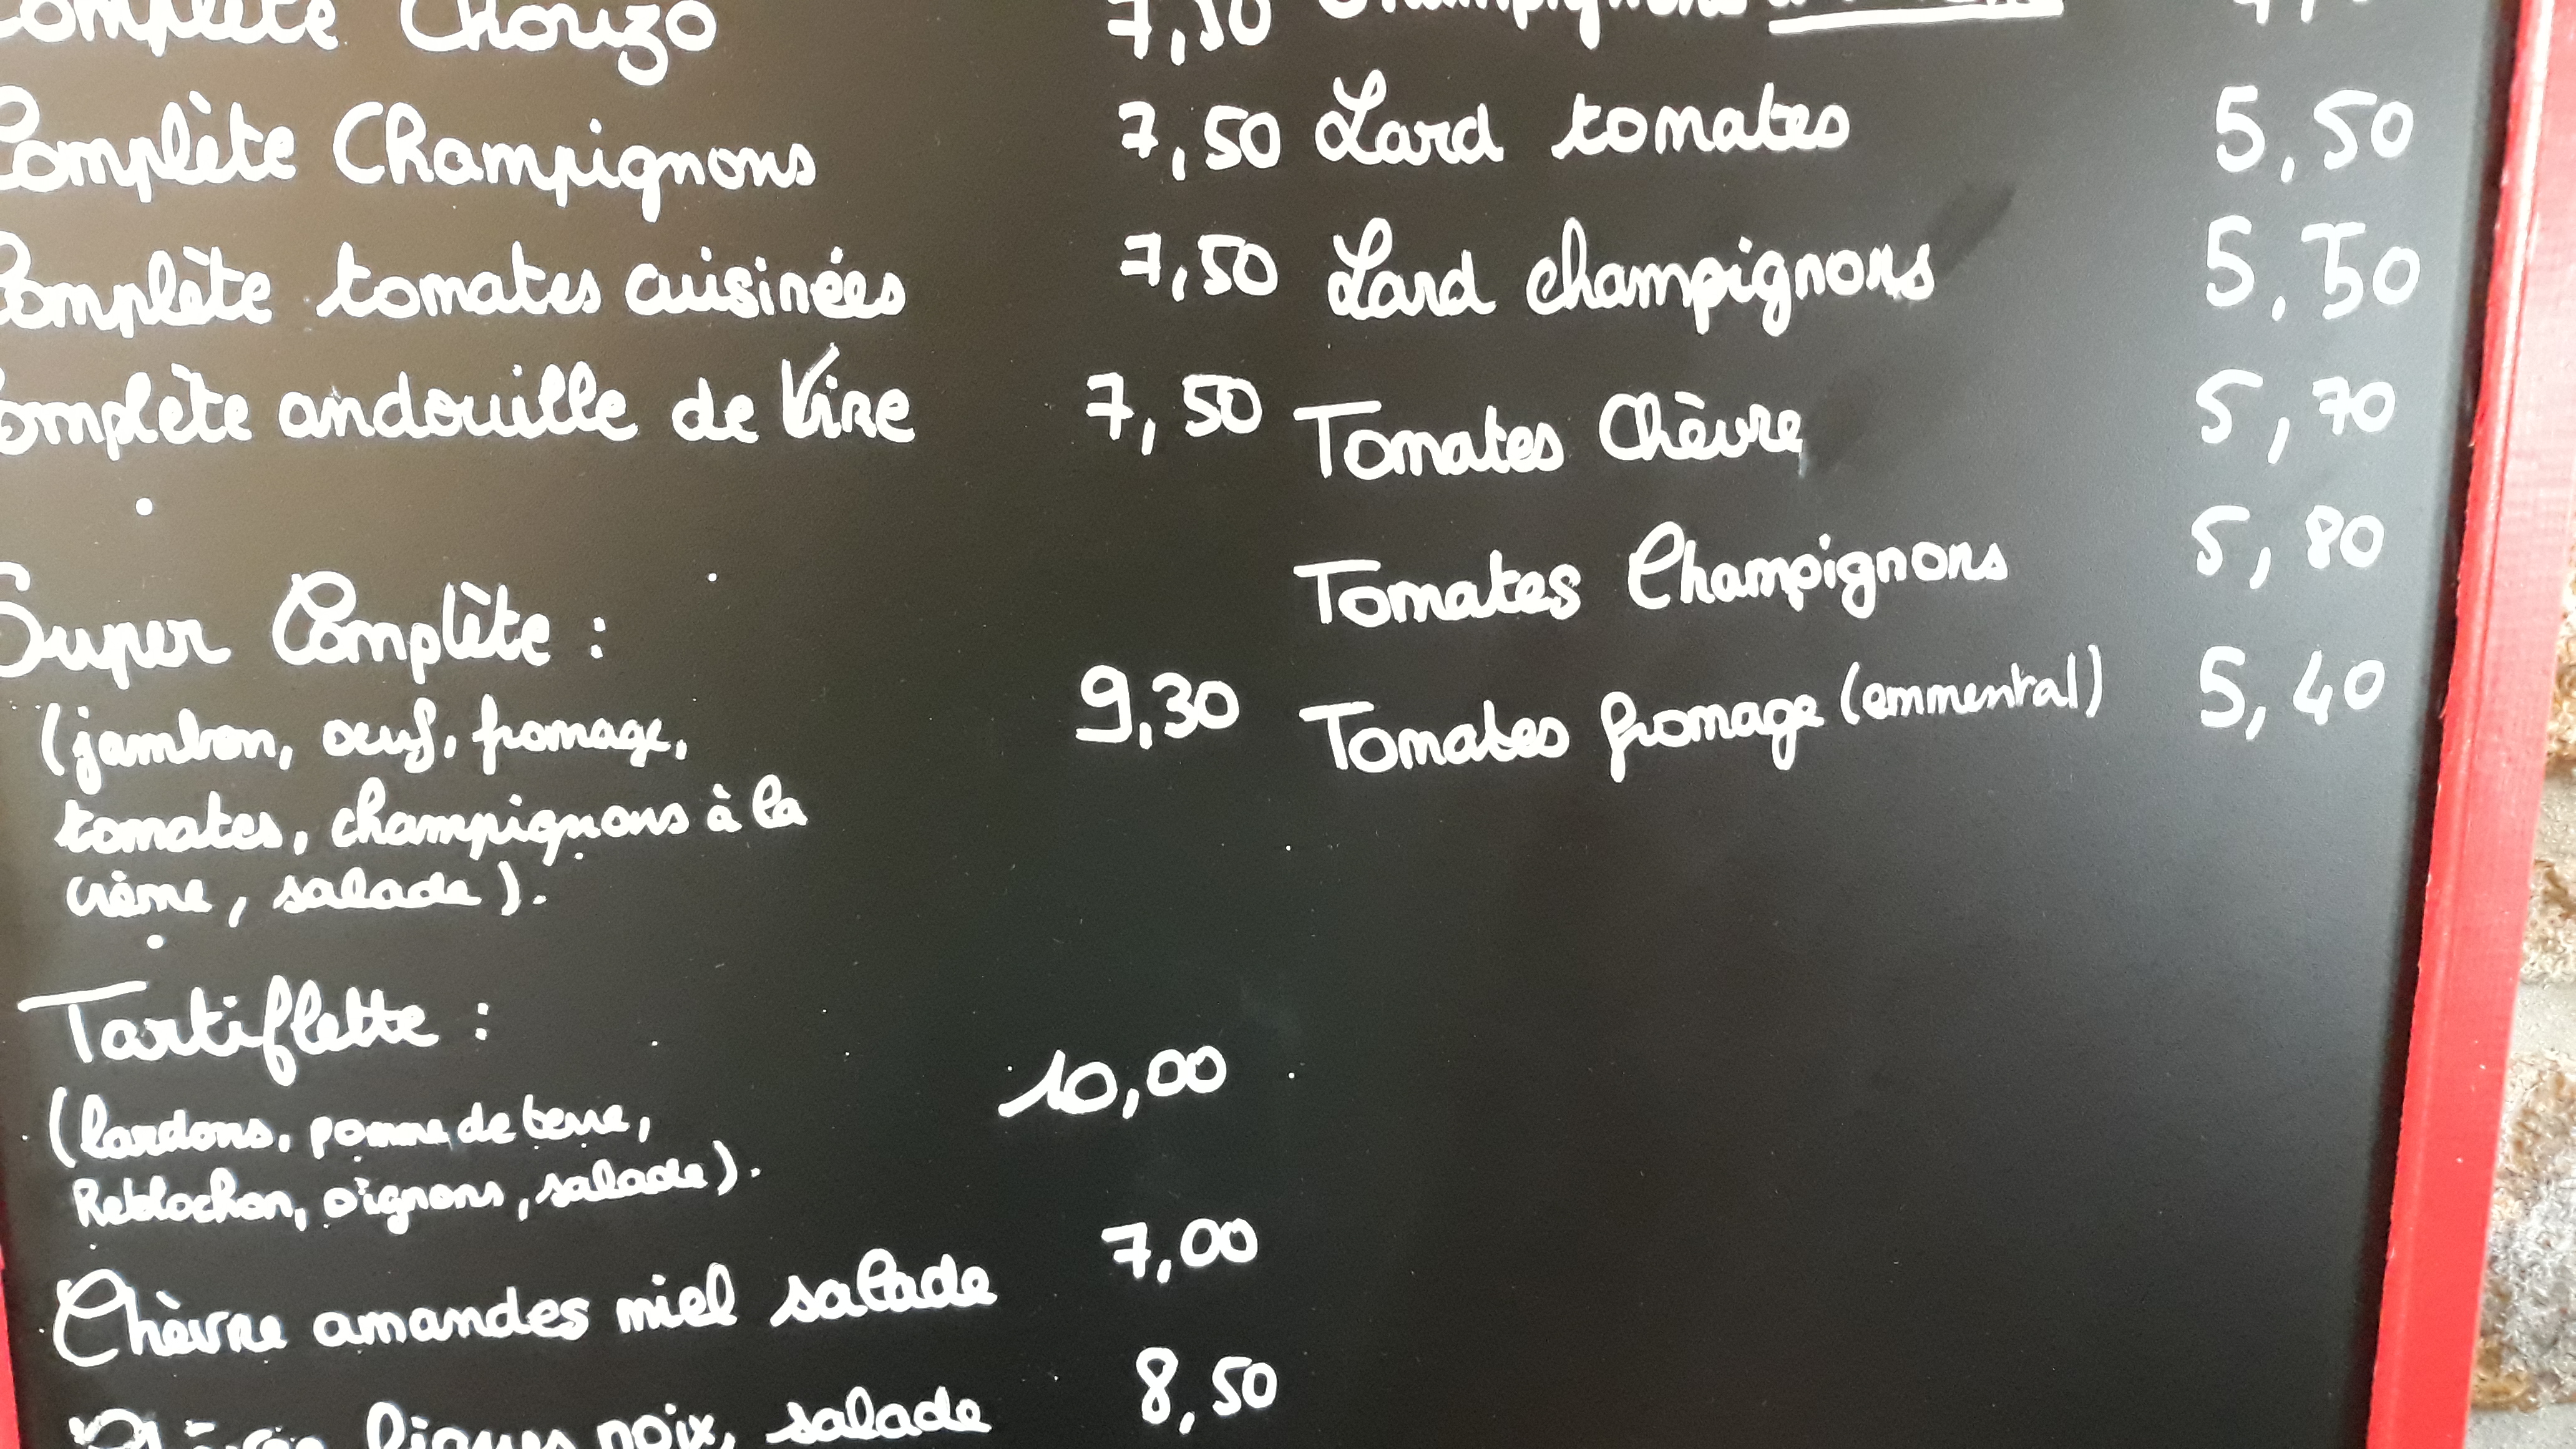 Complète Chorizo 7,50
Complète Champignons 7,50
Complète tomates cuisinées 7,50
Complète andouille de Vire 7,50
Super Complète :
9,30
(jambon, œuf, fromage,
tomates, champignons à la
crème, salade).
Tartiflette :
10,00
(lardons, pomme de terre,
Reblochon, oignons, salade).
Chèvre amandes miel salade 7,00
Chèvre figues noix, salade 8,50
Champignons
Lard tomates 5,50
Lard champignons 5,50
Tomates Chèvre 5,70
Tomates Champignons 5,80
Tomates fromage (emmental) 5,40